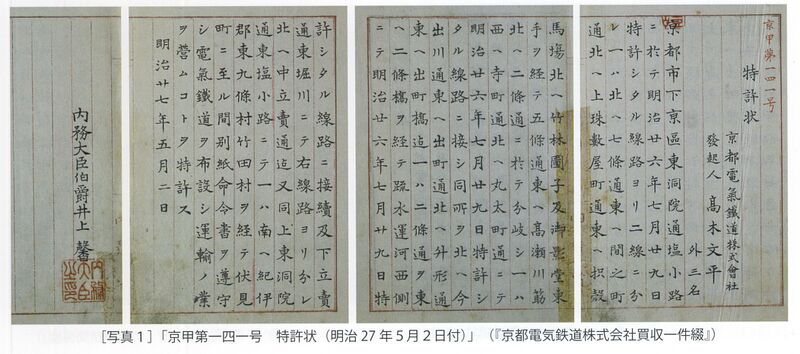 京甲第一四一号
特許状
京都電氣鐵道株式會社
發起人 髙木文平
外三名
京都市下京區東洞院通塩小路
ニ於テ明治廿六年七月廿九日
特許シタル線路ヨリ二線ニ分
レ一ハ北ヘ七條通東ヘ間之町
通北ヘ上珠數屋町通東ヘ枳殻
馬場北ヘ竹林團子及御影堂東
手ヲ経テ五條通東ヘ髙瀬川筋
北ヘ二條通ニ於テ分岐シ一ハ
西ヘ寺町通北ヘ丸太町通ニテ
明治廿六年七月廿九日特許シ
タル線路ニ接シ同所ヲ北ヘ今
出川通東ヘ出町通北ヘ升形通
東ヘ出町橋迄一ハ二條通ヲ東
ヘ二條橋ヲ経テ疏水運河西側
ニテ明治廿六年七月廿九日特
許シタル線路ニ接續及下立賣
通東堀川ニテ右線路ヨリ分レ
北ヘ中立賣通迄又同上東洞院
通東塩小路ニテ一ハ南ヘ紀伊
郡東九條村竹田村ヲ経テ伏見
町ニ至ル間別紙命令書ヲ遵守
シ電氣鐵道ヲ布設シ運輸ノ業
ヲ營ムコトヲ特許ス
明治廿七年五月二日
内務大臣伯爵井上 馨
内務大臣之印
[写真1]「京甲第一四一号　特許状(明治27年5月2日付)」(『京都電気鉄道株式会社買収一件綴』)